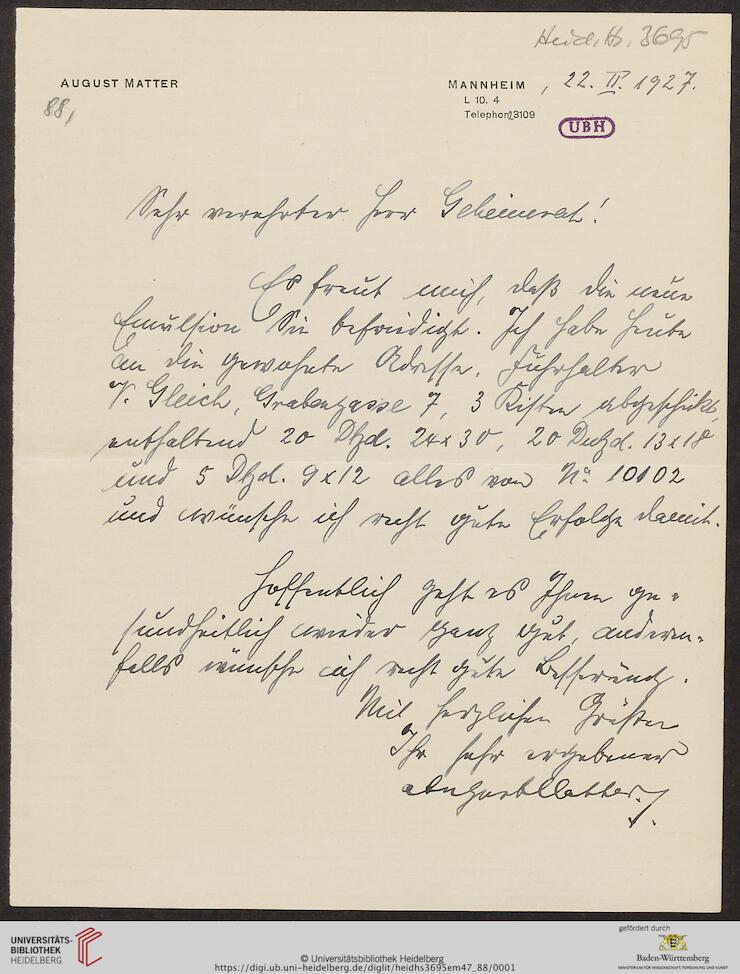 Heid. Hs. 3695
AUGUST MATTER
MANNHEIM, 22. II. 1927.
L 10. 4
Telephon 23109
88,
UBH
Sehr verehrter Herr Geheimrat!
Es freut mich, daß die neue
Emulsion Sie befriedigt. Ich habe heute
an die gewohnte Adresse, Fuhrhalter
V. Gleich, Grabengasse 7, 3 Kisten abgeschickt,
enthaltend 20 Dtzd. 24x30, 20 Dutzd. 13x18
und 5 Dtzd. 9x12 alles von No. 10102
und wünsche ich recht gute Erfolge damit.
Hoffentlich geht es Ihnen ge-
sundheitlich wieder ganz gut, andern-
falls wünsche ich recht gute Besserung.
Mit herzlichen Grüßen
Ihr sehr ergebener
August Matter.
UNIVERSITÄTS-
BIBLIOTHEK
HEIDELBERG
© Universitätsbibliothek Heidelberg
https://digi.ub.uni-heidelberg.de/diglit/heidhs3695em47_88/0001
gefördert durch
Baden-Württemberg
MINISTERIUM FÜR WISSENSCHAFT, FORSCHUNG UND KUNST